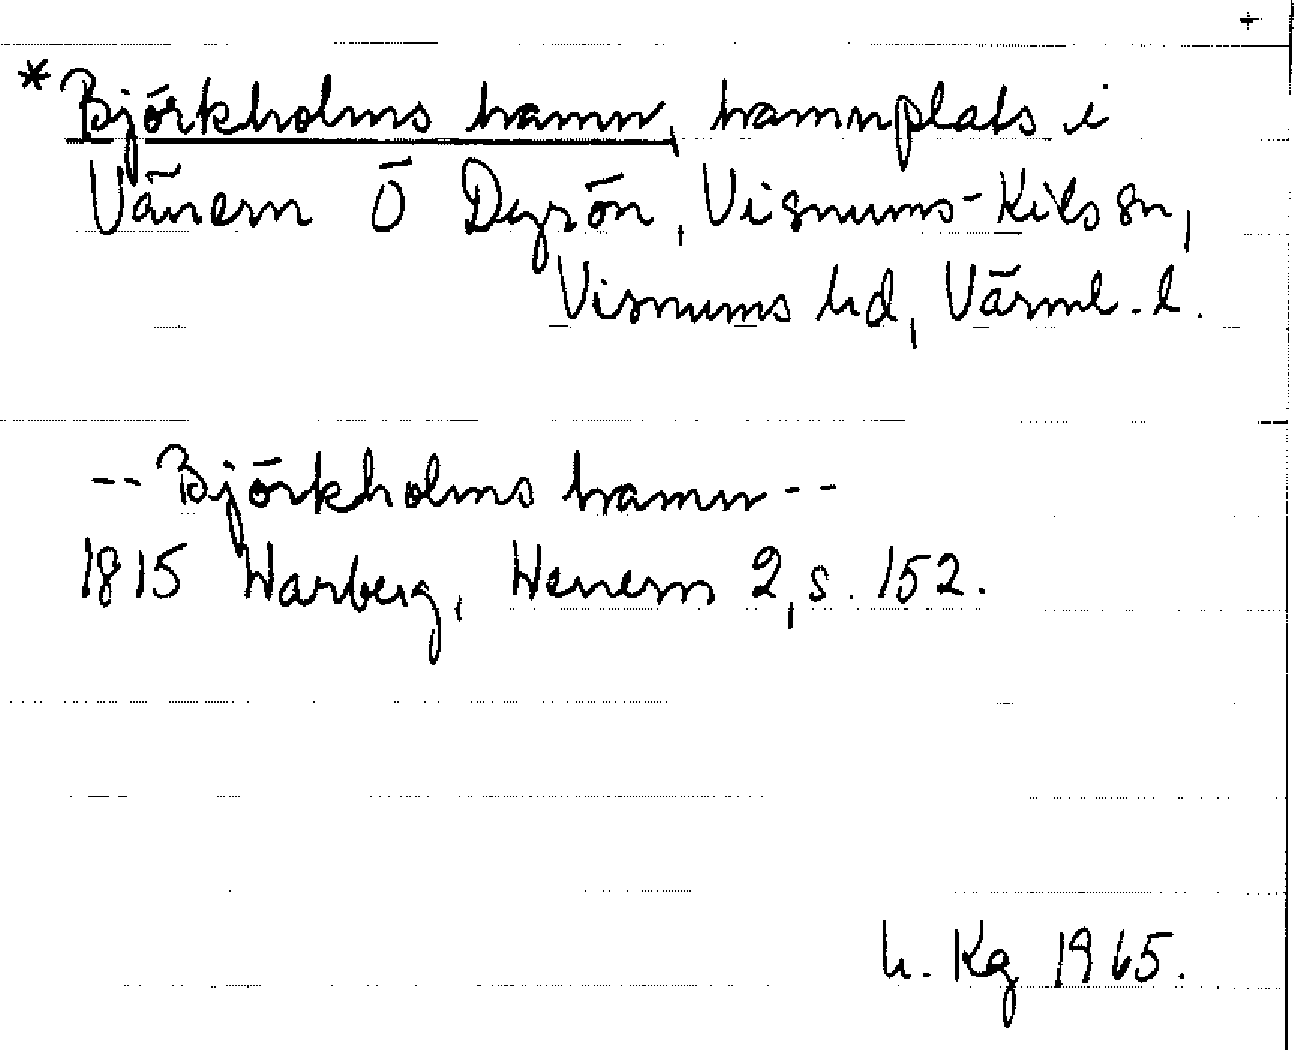 +
*Björkholms hamn, hamnplats i
Vänern Ö Dyrön, Visnums-Kils sn,
Visnums hd, Värml. l.
-- Björkholms hamn --
1815 Warberg, Wenern 2, s. 152.
h. Kg 1965.